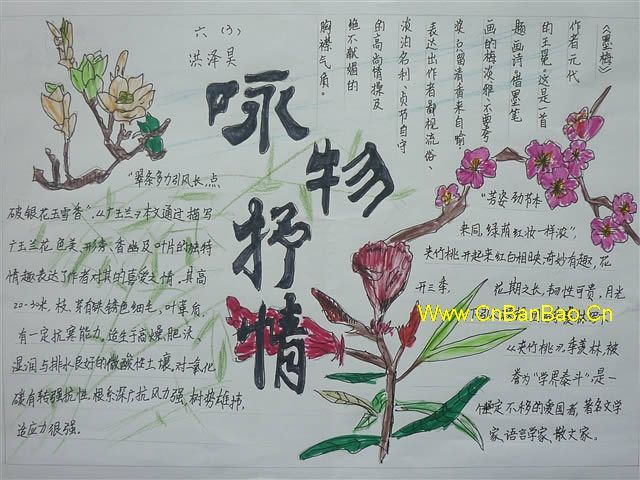 六 (3)
洪泽昊
咏物抒情
《墨梅》
作者元代
的王冕。这是一首
题画诗。借墨笔
画的梅淡雅,不要夸
奖,只留清香来自喻
表达出作者鄙视流俗、
淡泊名利,贞节自守
的高尚情操及
绝不献媚的
胸襟气质。
"翠条多力引风长,点
破银花玉雪香",《广玉兰》本文通过描写
广玉兰花色美、形秀、香幽及叶片的独特
情趣表达了作者对其的喜爱之情。其高
20-30米,枝、芽有铁锈色细毛,叶革质,
有一定抗寒能力,始生于高燥、肥沃、
湿润与排水良好的微酸性土壤,对二氧化
碳有较强抗性,根系深广抗风力强,树势雄伟,
适应力很强。
"芳姿劲节本
来同,绿荫红妆一样浓",
夹竹桃开起来红白相映,奇妙有趣,花
开三季, 花期之长,韧性可贵,月光
www.CnBanBao.Cn
夹竹桃》,季羡林,被
誉为"学界泰斗",是一
位坚定不移的爱国者,著名文学
家、语言学家、散文家。